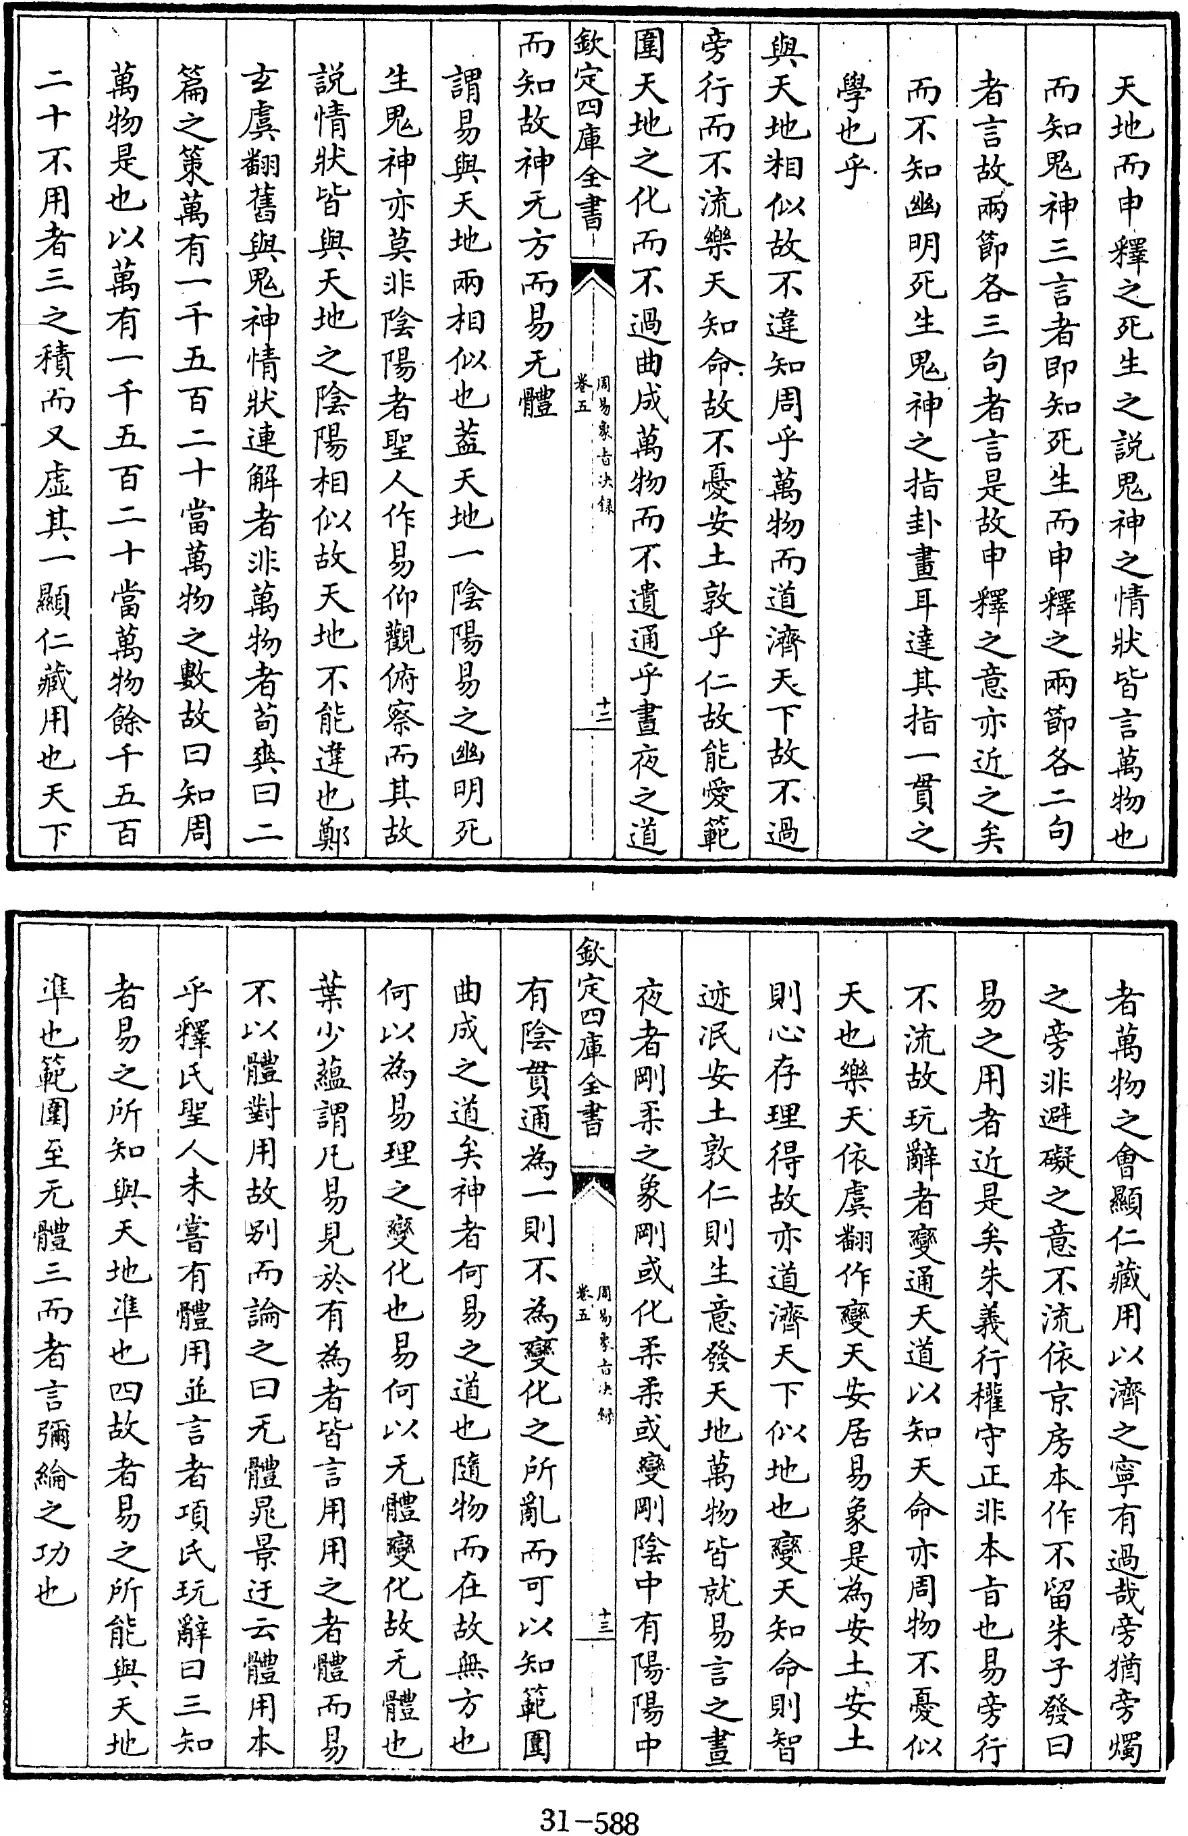 天地而申釋之死生之説鬼神之情狀皆言萬物也
而知鬼神三言者即知死生而申釋之兩節各二句
者言故兩節各三句者言是故申釋之意亦近之矣
而不知幽明死生鬼神之指卦畫耳達其指一貫之
學也乎
與天地相似故不違知周乎萬物而道濟天下故不過
旁行而不流樂天知命故不憂安土敦乎仁故能愛範
圍天地之化而不過曲成萬物而不遺通乎晝夜之道
欽定四庫全書
周易象旨決錄
卷五
十二
而知故神无方而易无體
謂易與天地兩相似也葢天地一陰陽易之幽明死
生鬼神亦莫非陰陽者聖人作易仰觀俯察而其故
説情狀皆與天地之陰陽相似故天地不能違也鄭
玄虞翻舊與鬼神情狀連解者非萬物者荀爽曰二
篇之策萬有一千五百二十當萬物之數故曰知周
萬物是也以萬有一千五百二十當萬物餘千五百
二十不用者三之積而又虛其一顯仁藏用也天下
者萬物之會顯仁藏用以濟之寧有過哉旁猶旁燭
之旁非避礙之意不流依京房本作不留朱子發曰
易之用者近是矣朱義行權守正非本旨也易旁行
不流故玩辭者變通天道以知天命亦周物不憂似
天也樂天依虞翻作變天安居易象是為安土安土
則心存理得故亦道濟天下似地也變天知命則智
迹泯安土敦仁則生意發天地萬物皆就易言之晝
夜者剛柔之象剛或化柔柔或變剛陰中有陽陽中
欽定四庫全書
周易象旨決錄
卷五
十三
有陰貫通為一則不為變化之所亂而可以知範圍
曲成之道矣神者何易之道也隨物而在故無方也
何以為易理之變化也易何以无體變化故无體也
葉少蘊謂凡易見於有為者皆言用用之者體而易
不以體對用故别而論之曰无體晁景迂云體用本
乎釋氏聖人未嘗有體用並言者項氏玩辭曰三知
者易之所知與天地準也四故者易之所能與天地
準也範圍至无體三而者言彌綸之功也
31-588